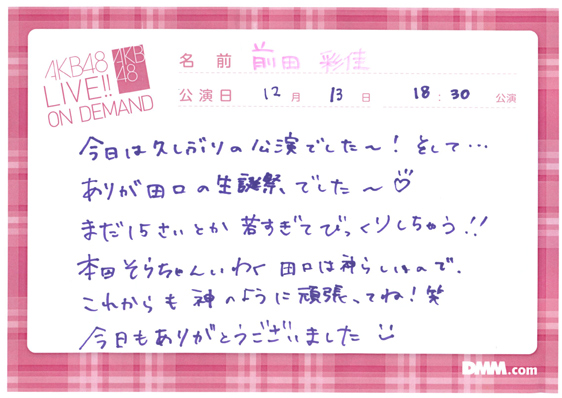 AKB48
LIVE!!
ON DEMAND
AKB
48
名前 前田 彩佳
公演日 12月 13日 18:30 公演
今日は久しぶりの公演でした〜!そして…
ありが田口の生誕祭でした〜♡
まだ15さいとか若すぎてびっくりしちゃう!!
本田そらちゃんいわく田口は神らしいので、
これからも神のように頑張ってね!笑
今日もありがとうございました
DMM.com